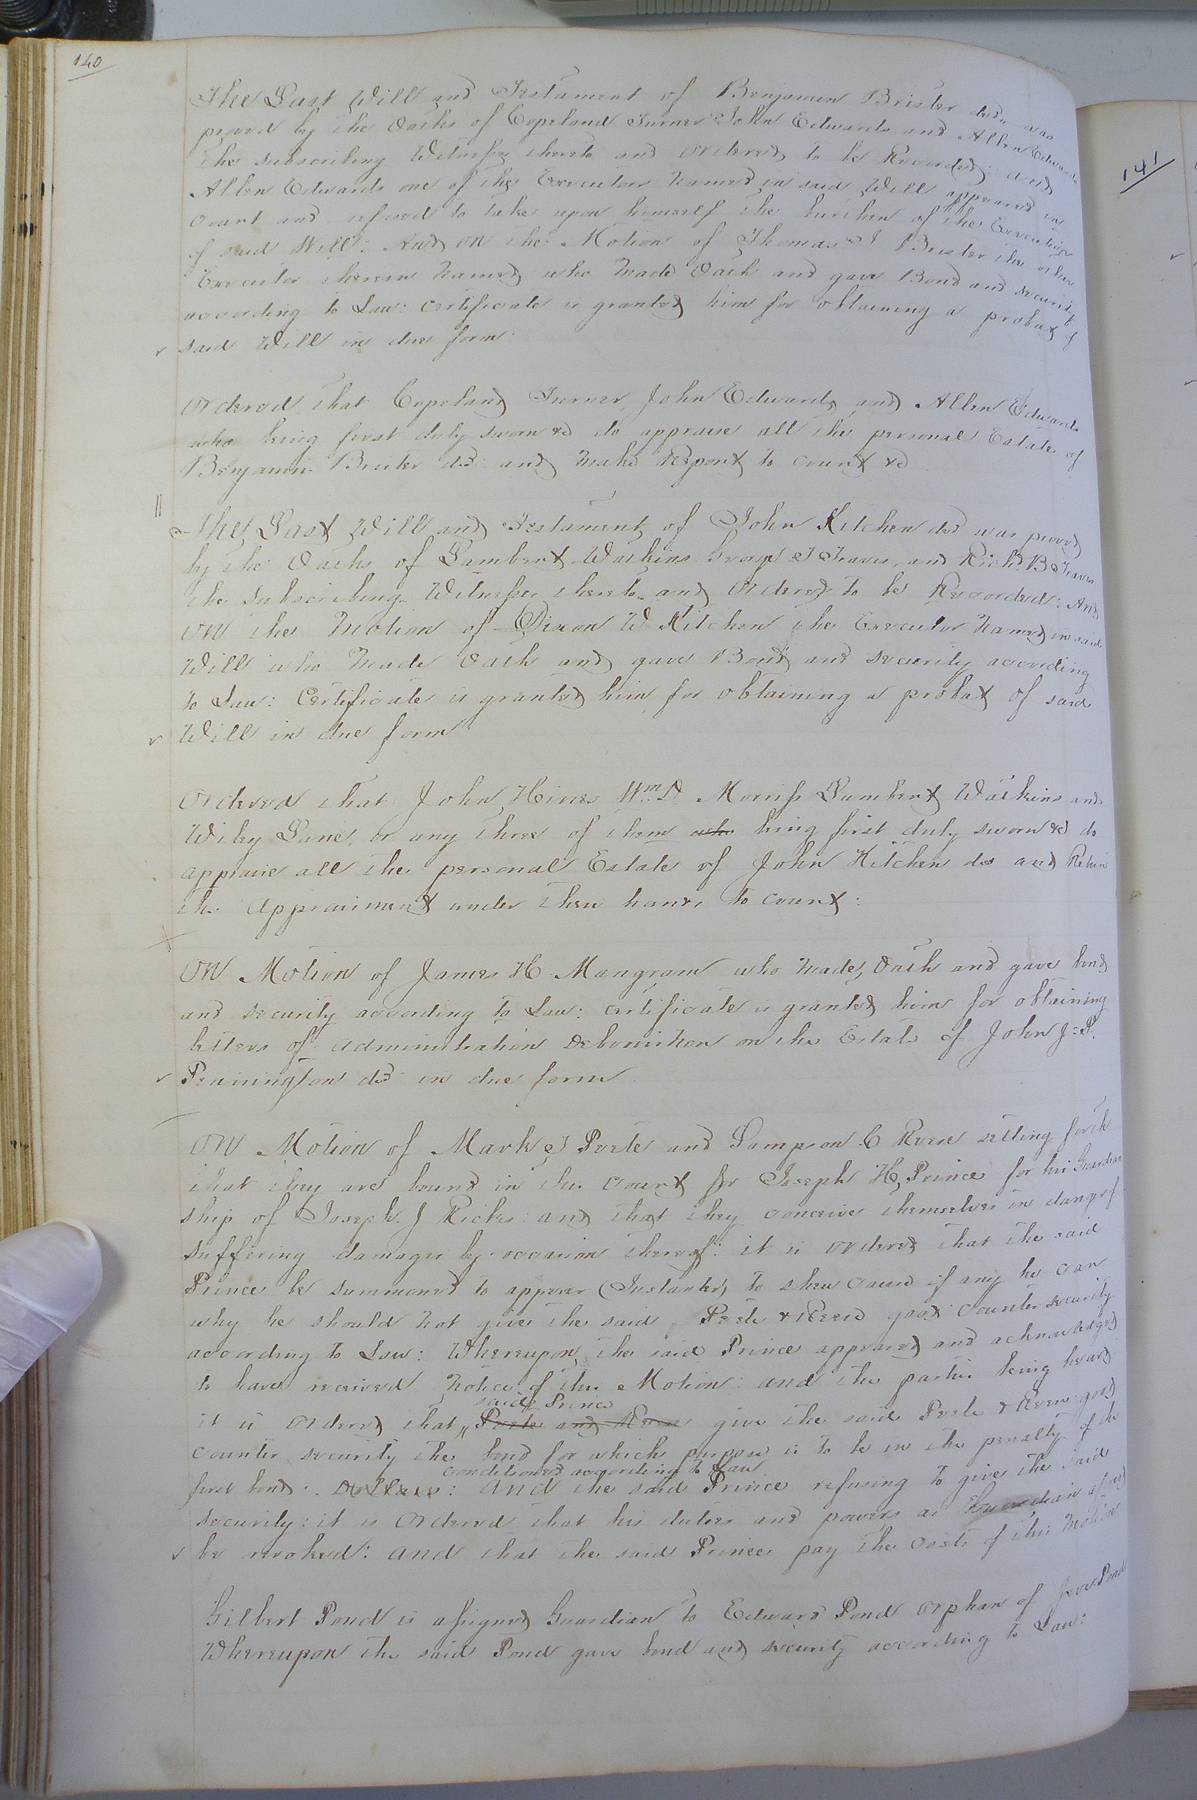 140
The Last Will and Testament of Benjamin Brister decd. was
proved by the Oaths of Copeland Turner John Edwards and Allen Edwards
the subscribing Witnesses thereto and Ordered to be Recorded: and
Allen Edwards one of the Executors Named in said Will appeared in
Court and refused to take upon himself the burthen of the Execution
of said Will: And on the Motion of Thomas J Brister the other
Executor therein Named who Made Oath and gave Bond and security
according to Law: Certificate is granted him for obtaining a probat of
said Will in due form.
Ordered that Copeland Turner John Edwards and Allen Edwards
who being first duly sworn &c do appraise all the personal Estate of
Benjamin Brister decd and Make Report to Court &c
The Last Will and Testament of John Kitchen decd was proved
by the Oaths of Lambert Watkins J Travis and Richd B Travis
the Subscribing Witnesses thereto and Ordered to be Recorded: And
on the Motion of Dixon W Kitchen the Executor Named in said
Will who Made Oath and gave Bond and security according
to Law: Certificate is granted him for obtaining a probat of said
Will in due form
Ordered that John Hines Wm D Morriss Lambert Watkins and
Wiley Lane or any three of them who being first duly sworn &c do
appraise all the personal Estate of John Kitchen decd and Return
the Appraisment under their hands to Court:
On Motion of James H Mangram who Made Oath and gave bond
and security according to Law: certificate is granted him for obtaining
letters of administration Debonisnon on the Estate of John J. P.
Pennington decd in due form
On Motion of Mark J Peete and Sampson C Reese setting forth
that they are bound in this Court for Joseph H Prince for his Guardian
ship of Joseph J Ricks: and that they conceive themselves in danger of
suffering damages by occasion thereof: it is ordered that the said
Prince be summoned to appear (Instanter) to shew cause if any he can
why he should Not give the said Peete & Reese good counter security
according to Law: Whereupon the said Prince appeared and acknowledged
to have received Notice of this Motion: and the parties being heard
said Prince
it is Ordered that Peete and Reese give the said Peete & Reese good
counter security the bond for which purpose is to be in the penalty of the
conditioned according to Law
first bond: and the said Prince refusing to give the said
security: it is Ordered that his duties and powers as Guardian aforesd
be revoked: and that the said Prince pay the Costs of this Motion
Gilbert Pond is assigned Guardian to Edward Pond Orphan of Pond
Whereupon the said Pond gave bond and security according to Law:
141